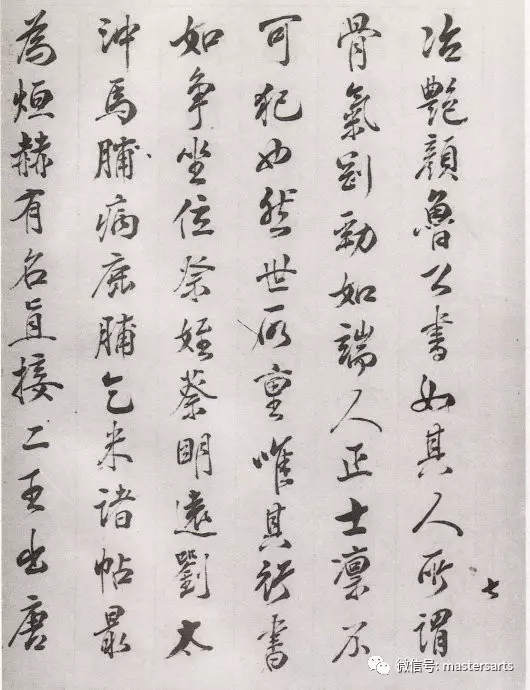 冶艷顏魯公書如其人所謂
骨氣剛勁如端人正士凛不
可犯也然世所重唯其行書
如爭坐位祭姪蔡明遠劉太
沖馬脯病鹿脯乞米諸帖最
為烜赫有名直接二王出唐
七
微信号: mastersarts